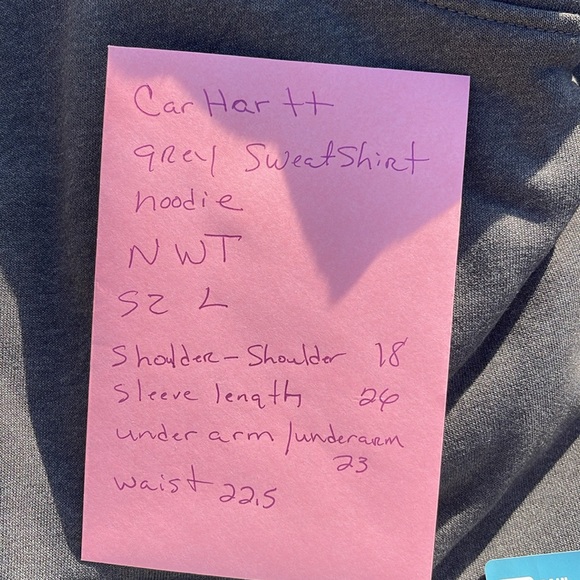 CarHartt
grey SweatShirt
hoodie
NWT
SZ L
Shoulder - Shoulder 18
Sleeve length 26
under arm / underarm
23
waist 22.5